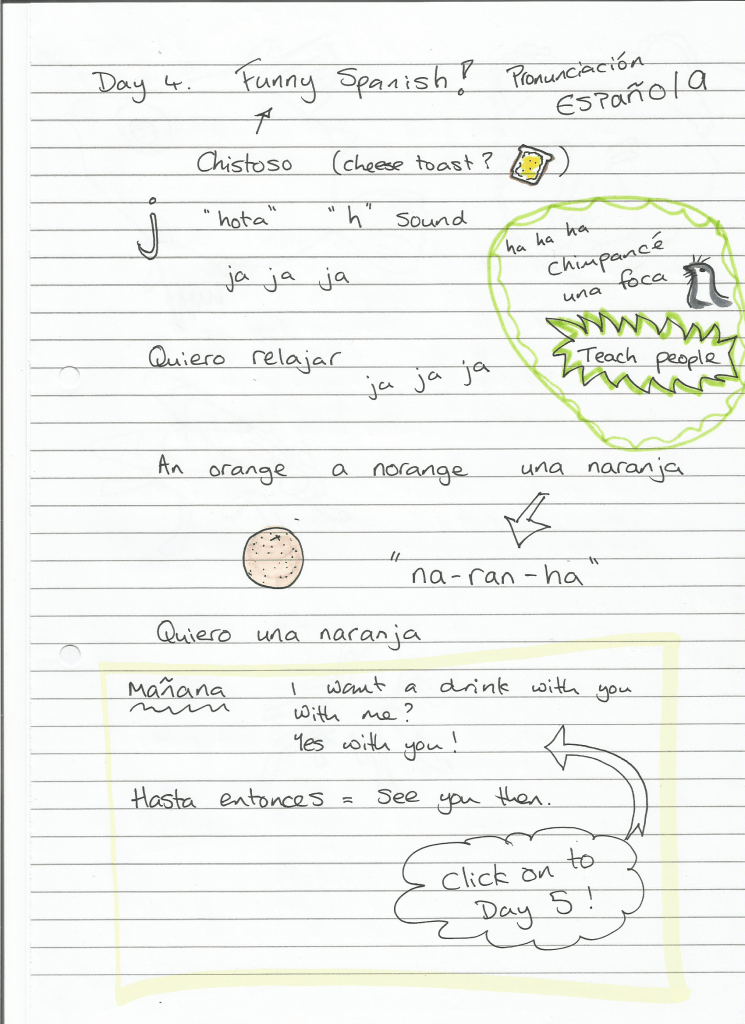 Day 4. Funny Spanish! Pronunciación
ESPAÑOlA
Chistoso (cheese toast? )
j "hota" "h" sound
ja ja ja
ha ha ha
chimpancé
una foca
Teach people
Quiero relajar
ja ja ja
An orange a norange una naranja
"na-ran-ha"
Quiero una naranja
Mañana I want a drink with you
With me?
Yes with you!
Hasta entonces = See you then.
Click on to
Day 5!